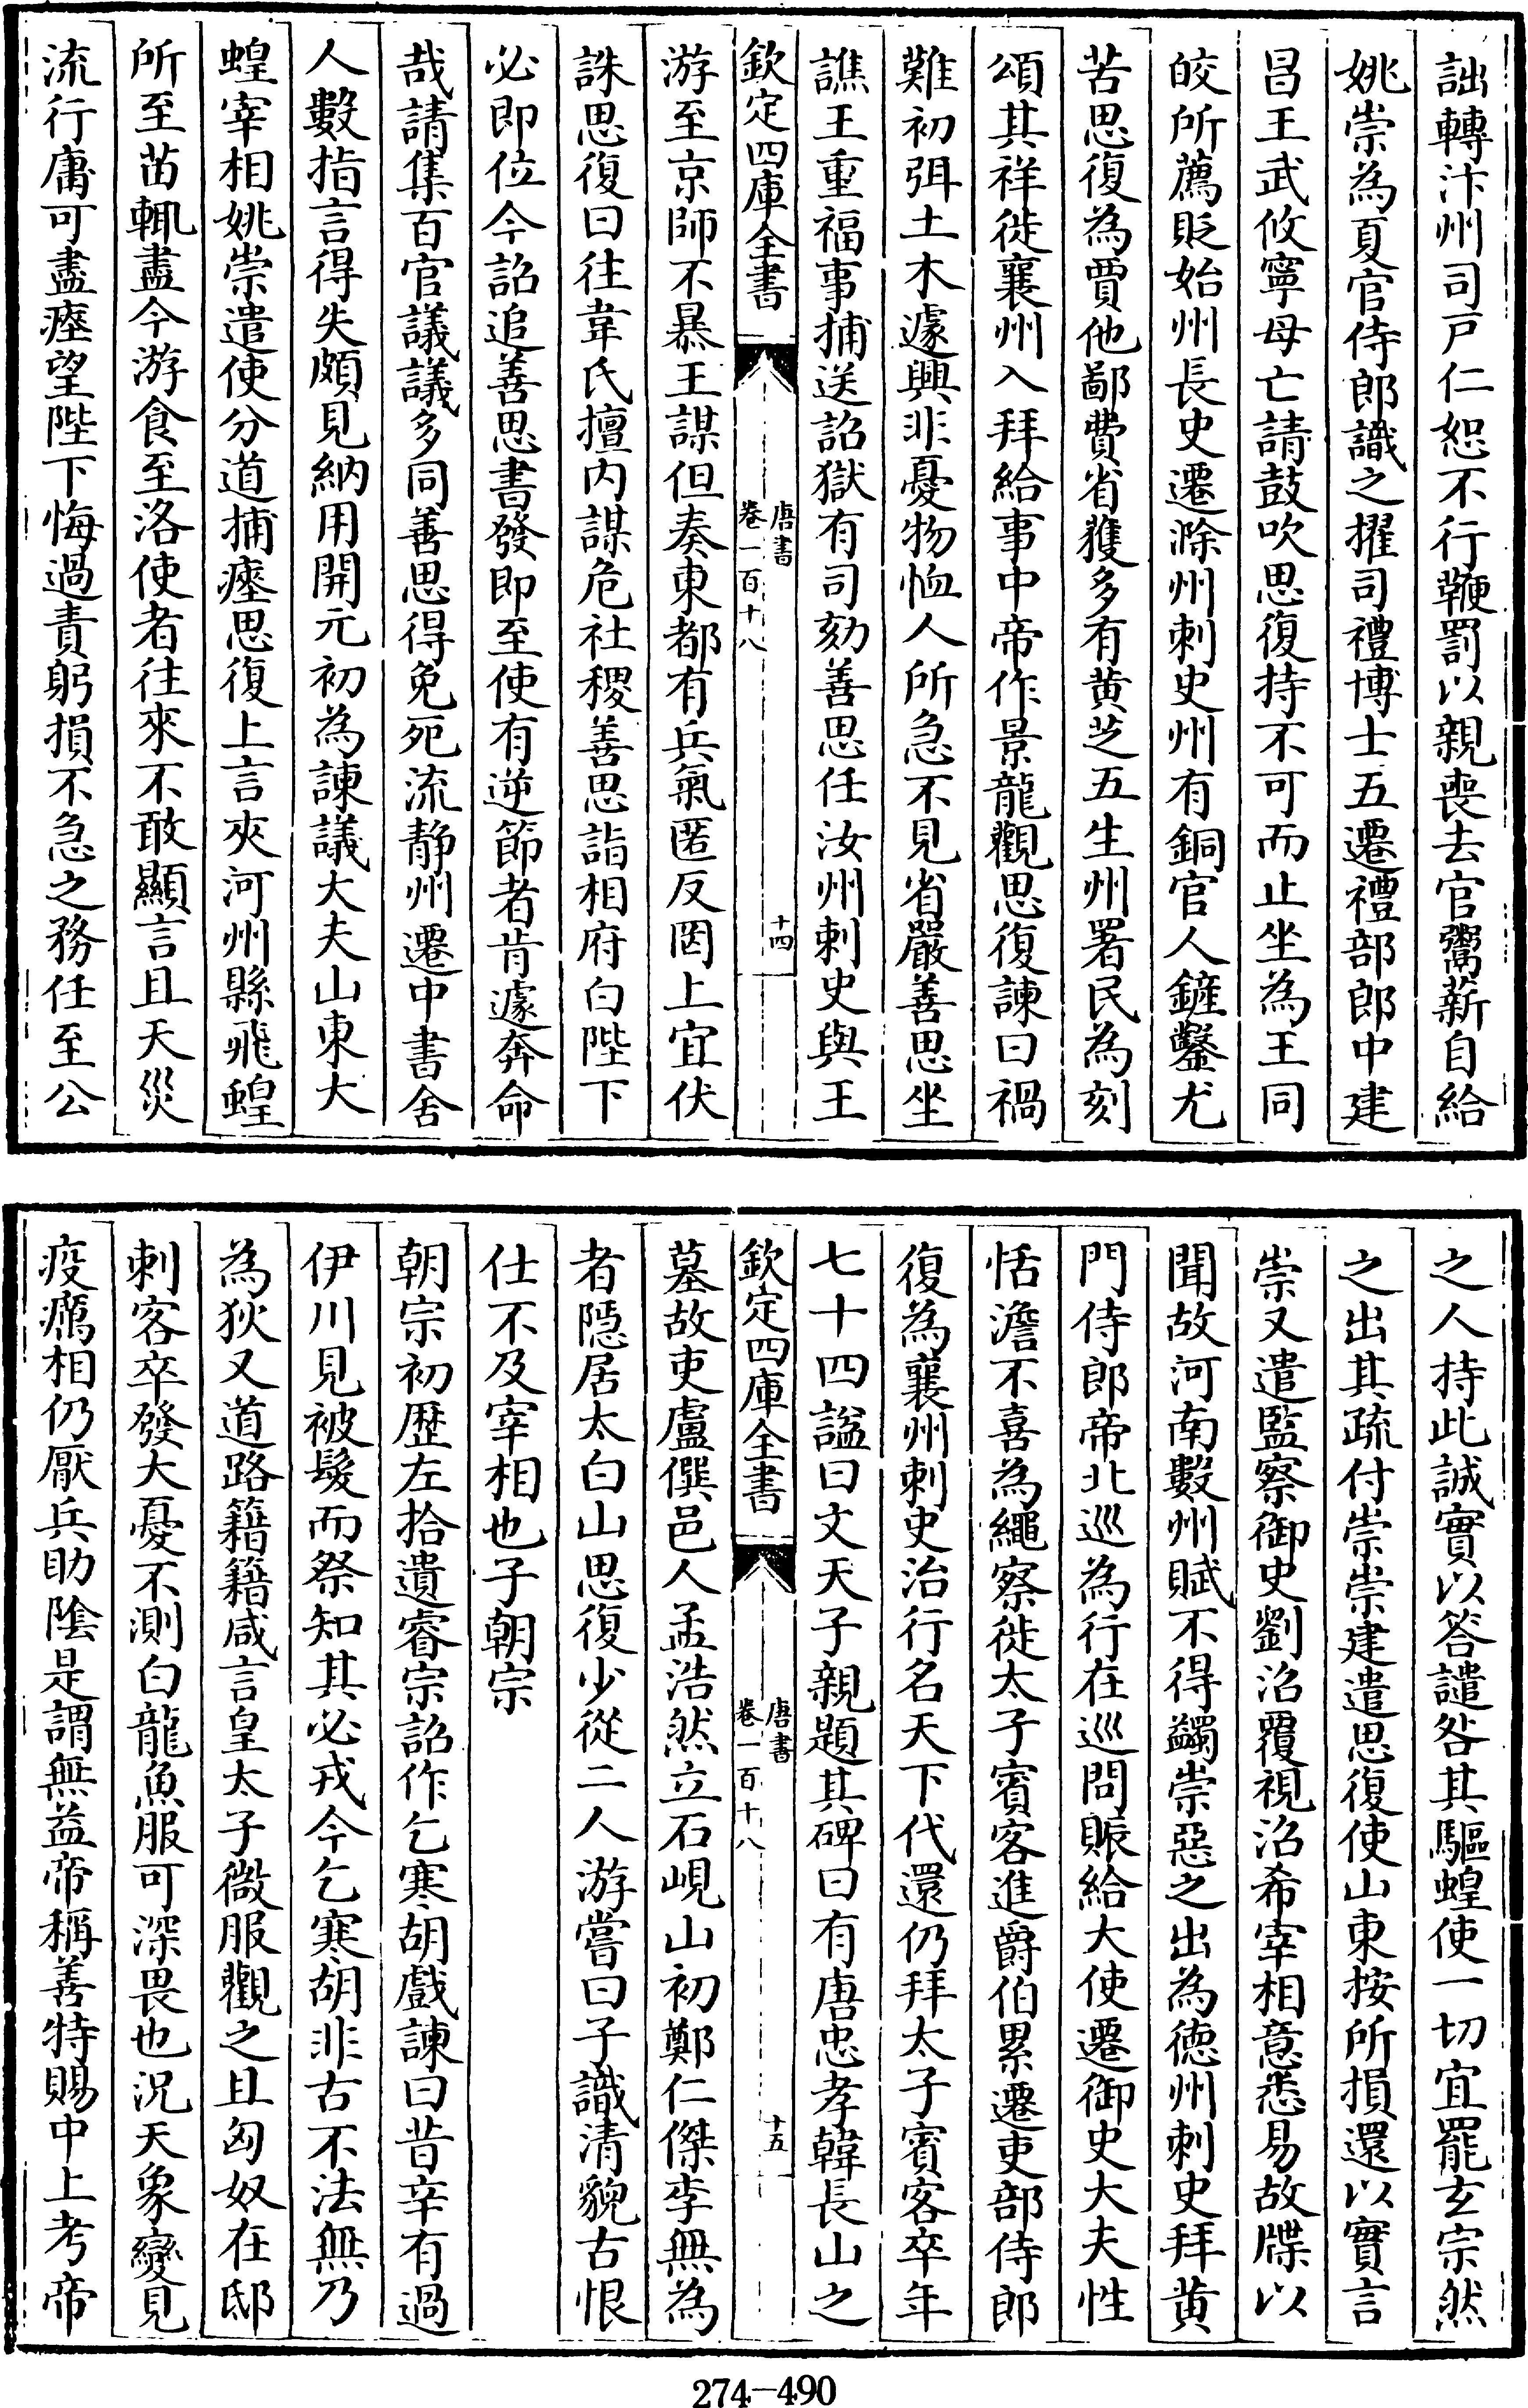 詘轉汴州司戸仁恕不行鞭罰以親喪去官鬻薪自給
姚崇為夏官侍郎識之擢司禮博士五遷禮部郎中建
昌王武攸寧母亡請鼓吹思復持不可而止坐為王同
皎所薦貶始州長史遷滁州刺史州有銅官人鏟鑿尤
苦思復為賈他鄙費省獲多有黄芝五生州署民為刻
頌其祥徙襄州入拜給事中帝作景龍觀思復諫曰禍
難初弭土木遽興非憂物恤人所急不見省嚴善思坐
譙王重福事捕送詔獄有司劾善思任汝州刺史與王
欽定四庫全書
唐書
卷一百十八
十四
游至京師不暴王謀但奏東都有兵氣匿反罔上宜伏
誅思復曰往韋氏擅内謀危社稷善思詣相府白陛下
必即位今詔追善思書發即至使有逆節者肯遽奔命
哉請集百官議議多同善思得免死流静州遷中書舍
人數指言得失頗見納用開元初為諫議大夫山東大
蝗宰相姚崇遣使分道捕瘞思復上言夾河州縣飛蝗
所至苗輒盡今游食至洛使者往來不敢顯言且天災
流行庸可盡瘞望陛下悔過責躬損不急之務任至公
之人持此誠實以答譴咎其驅蝗使一切宜罷玄宗然
之出其疏付崇崇建遣思復使山東按所損還以實言
崇又遣監察御史劉沼覆視沼希宰相意悉易故牒以
聞故河南數州賦不得蠲崇惡之出為徳州刺史拜黄
門侍郎帝北巡為行在巡問賑給大使遷御史大夫性
恬澹不喜為繩察徙太子賓客進爵伯累遷吏部侍郎
復為襄州刺史治行名天下代還仍拜太子賓客卒年
七十四諡曰文天子親題其碑曰有唐忠孝韓長山之
欽定四庫全書
唐書
卷一百十八
十五
墓故吏盧僎邑人孟浩然立石峴山初鄭仁傑李無為
者隠居太白山思復少從二人游嘗曰子識清貌古恨
仕不及宰相也子朝宗
朝宗初歴左拾遺睿宗詔作乞寒胡戲諫曰昔辛有過
伊川見被髮而祭知其必戎今乞寒胡非古不法無乃
為狄又道路籍籍咸言皇太子微服觀之且匈奴在邸
刺客卒發大憂不測白龍魚服可深畏也況天象變見
疫癘相仍厭兵助隂是謂無益帝稱善特賜中上考帝
274-490